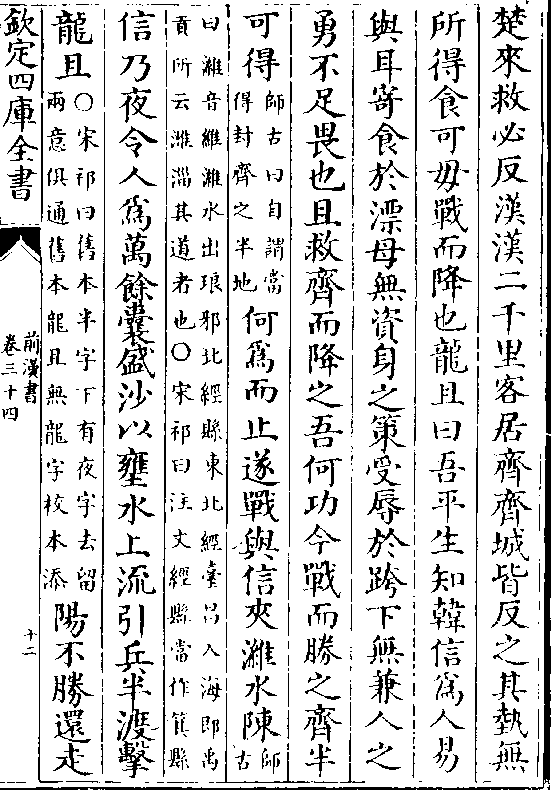 楚來救必反漢漢二千里客居齊齊城皆反之其埶無
所得食可毋戰而降也龍且曰吾平生知韓信爲人易
與耳寄食於漂母無資身之策受辱於跨下無兼人之
勇不足畏也且救齊而降之吾何功今戰而勝之齊半
可得師古曰自謂當得封齊之半地何爲而止遂戰與信夾濰水陳師古
曰濰音維濰水出琅邪北經縣東北經臺昌入海即禹
貢所云濰淄其道者也〇宋祁曰注文經縣當作箕縣
信乃夜令人爲萬餘囊盛沙以壅水上流引兵半渡擊
龍且〇宋祁曰舊本半字下有夜字去留兩意俱通舊本龍且無龍字校本添陽不勝還走
欽定四庫全書
前漢書
卷三十四
十二